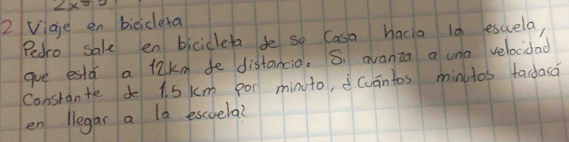 2x=5
2 Viaje en bicicleta
Pedro sale en bicicleta de so casa hacia la escuela,
que está a 12km de distancia. Si avanza a una velocidad
constante de 1.5 km por minuto, ¿Cuántos minutos tardará
en llegar a la escuela?